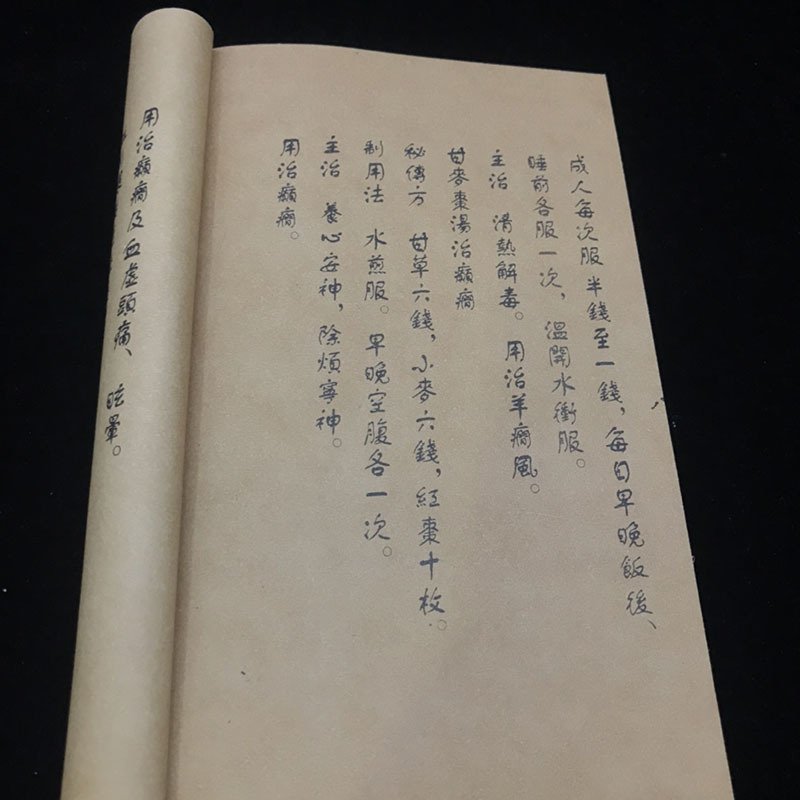 成人每次服半錢至一錢，每日早晚飯後、
睡前各服一次，溫開水衝服。
主治 清熱解毒。用治羊癇風。
甘麥棗湯治癲癇
秘傳方 甘草六錢，小麥六錢，紅棗十枚。
制用法 水煎服。早晚空腹各一次。
主治 養心安神，除煩寧神。
用治癲癇。
用治癲癇及血虛頭痛、眩暈。